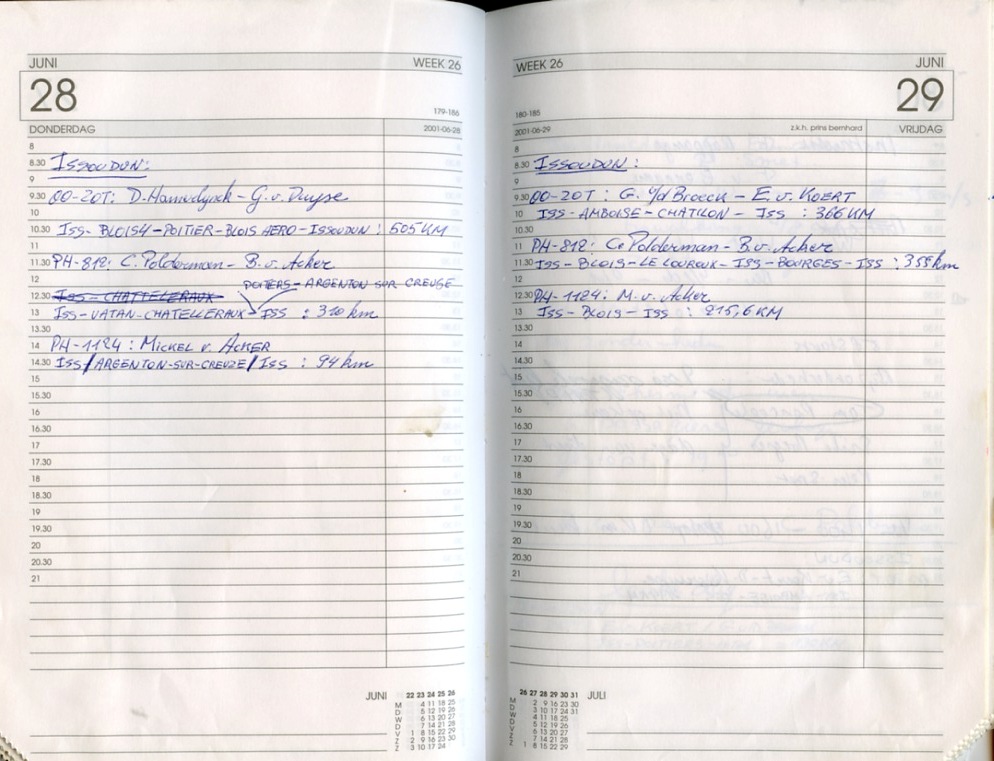 JUNI WEEK 26
28
179-186
DONDERDAG 2001-06-28
8
8.30 ISSOUDUN:
9
9.30 OO-ZOT: D. - G. v. Duyse
10
10.30 ISS-BLOIS4-POITIER-BLOIS AERO-ISSOUDUN: 505 KM
11
11.30 PH-812: C. Polderman - B. v. Acker
12 POITERS - ARGENTON SUR CREUSE
12.30 ISS-CHATTELERAUX
13 ISS-VATAN-CHATELLERAUX ISS : 310 km
13.30
14 PH-1124: MICKEL v. ACKER
14.30 ISS/ARGENTON-SUR-CREUZE/ISS : 94 km
15
15.30
16
16.30
17
17.30
18
18.30
19
19.30
20
20.30
21
JUNI 22 23 24 25 26
M 4 11 18 25
D 5 12 19 26
W 6 13 20 27
D 7 14 21 28
V 1 8 15 22 29
Z 2 9 16 23 30
Z 3 10 17 24
WEEK 26 JUNI
29
180-185
2001-06-29 z.k.h. prins bernhard VRIJDAG
8
8.30 ISSOUDUN:
9
9.30 OO-ZOT: G. v/d Broeck - E. v. KOERT
10 ISS-AMBOISE-CHATILON-ISS : 366 KM
11 PH-812: C. Polderman - B. v. Acker
11.30 ISS-BLOIS-LE LOUROUX-ISS-BOURGES-ISS : 355 km
12
12.30 PH-1124: M. v. Acker
13 ISS-BLOIS-ISS : 215,6 KM
13.30
14
14.30
15
15.30
16
16.30
17
17.30
18
18.30
19
19.30
20
20.30
21
26 27 28 29 30 31 JULI
M 2 9 16 23 30
D 3 10 17 24 31
W 4 11 18 25
D 5 12 19 26
V 6 13 20 27
Z 7 14 21 28
Z 1 8 15 22 29